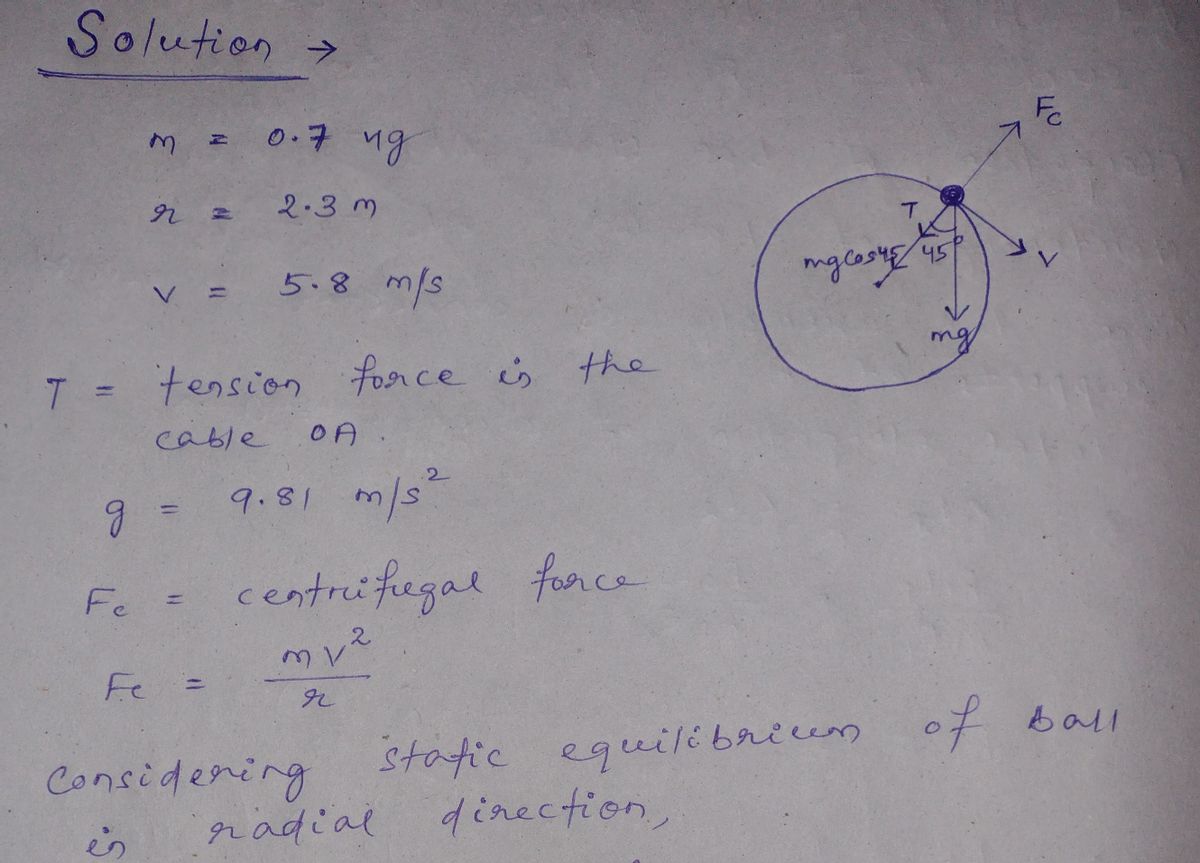 Solution →
m = 0.7 kg
r = 2.3 m
v = 5.8 m/s
T = tension force in the
cable OA.
g = 9.81 m/s²
Fc = centrifugal force
Fc = mv²/r
Considering static equilibrium of ball
in radial direction,
Fc
T
mgcos45
45°
v
mg